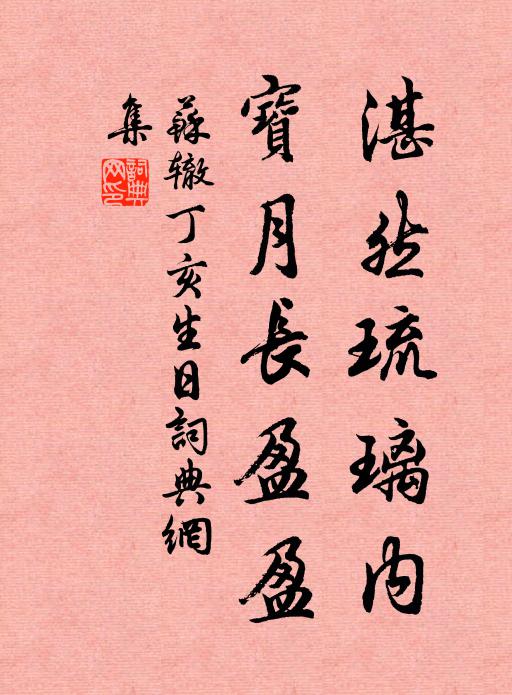 湛然琉璃内
寶月長盈盈
蘇辙丁亥生日詞典網
集
詞典網印